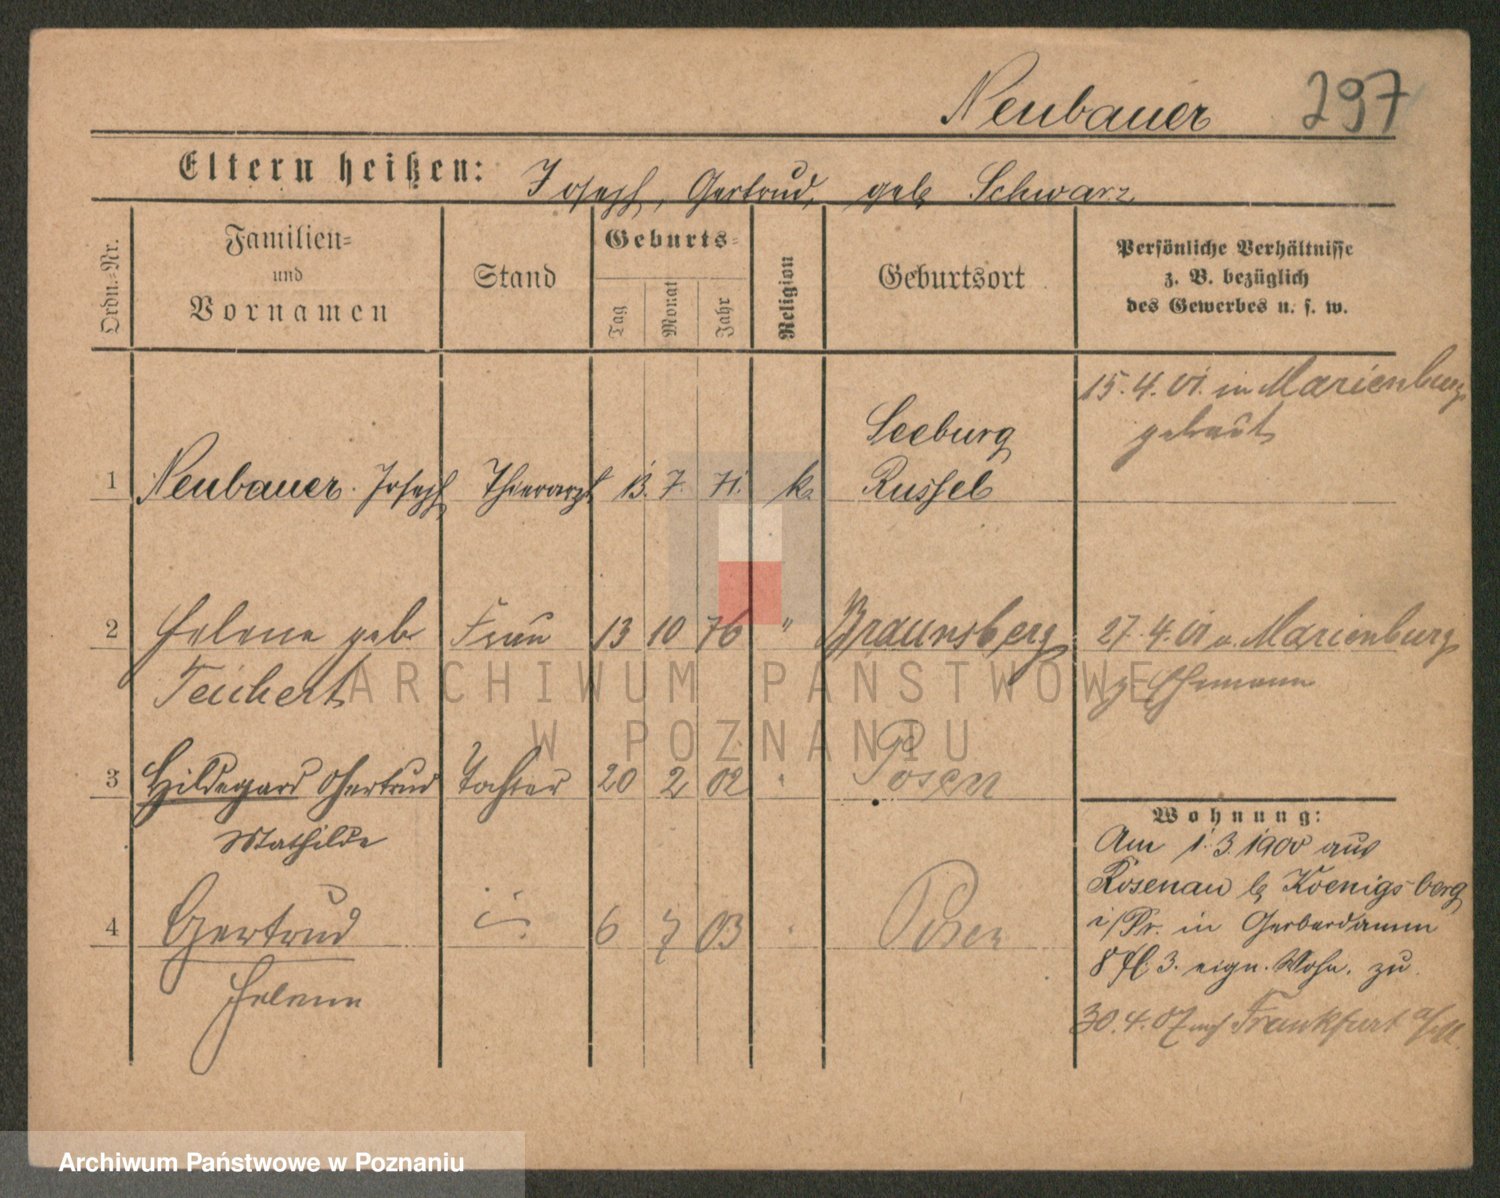 Neubauer 297
Eltern heißen: Joseph, Gertrud, geb Schwarz
Ordn.-Nr.
Familien-
und
Vornamen
Stand
Geburts-
Tag
Monat
Jahr
Religion
Geburtsort
Persönliche Verhältnisse
z. B. bezüglich
des Gewerbes u. s. w.
15.4.01. in Marienburg
getraut
Seeburg
1 Neubauer Joseph Thierarzt 13. 7. 71. k. Russel
2 Helene geb Frau 13 10 76 " Braunsberg 27.4.01 v. Marienburg
Teichert z. Ehemann
3 Hildegard Gertrud Tochter 20 2 02 " Posen
Mathilde
4 Gertrud 6 7 03 Posen
Helene
Wohnung:
Am 1.3.1900 aus
Rosenau b Koenigsberg
i/Pr. in Gerberdamm
8 3. eign. Wohn. zu
30.4.07 nach Frankfurt a/M.
ARCHIWUM PAŃSTWOWE
W POZNANIU
Archiwum Państwowe w Poznaniu